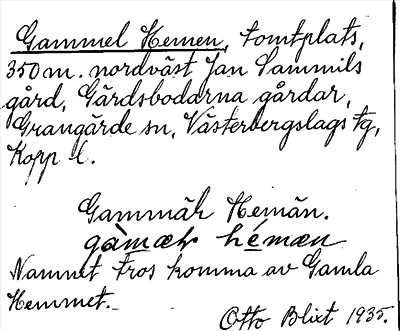 Gammel Hemen, tomtplats,
350 m. nordväst Jan Sammils
gård, Gärdsbodarna gårdar,
Grangärde sn, Västerbergslags tg,
Kopp l.
Gammäk Hemän.
gàmæk hemæn
Namnet tros komma av Gamla
Hemmet.
Otto Blixt 1935.